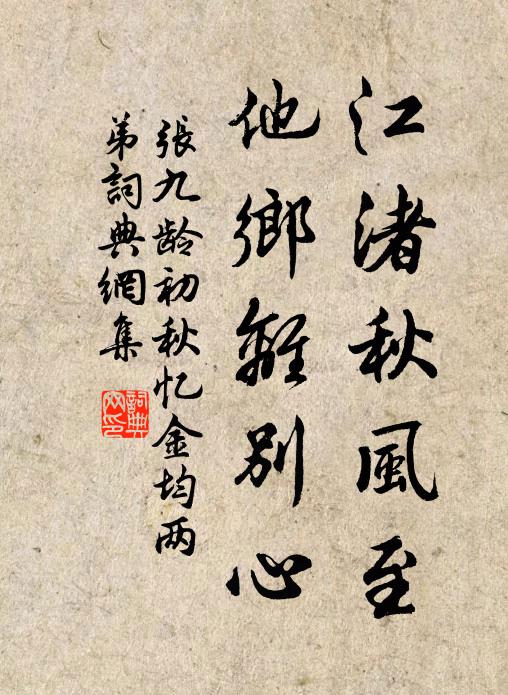 江渚秋風至
他鄉離別心
張九龄初秋忆金均两
弟詞典網集
詞典
网印